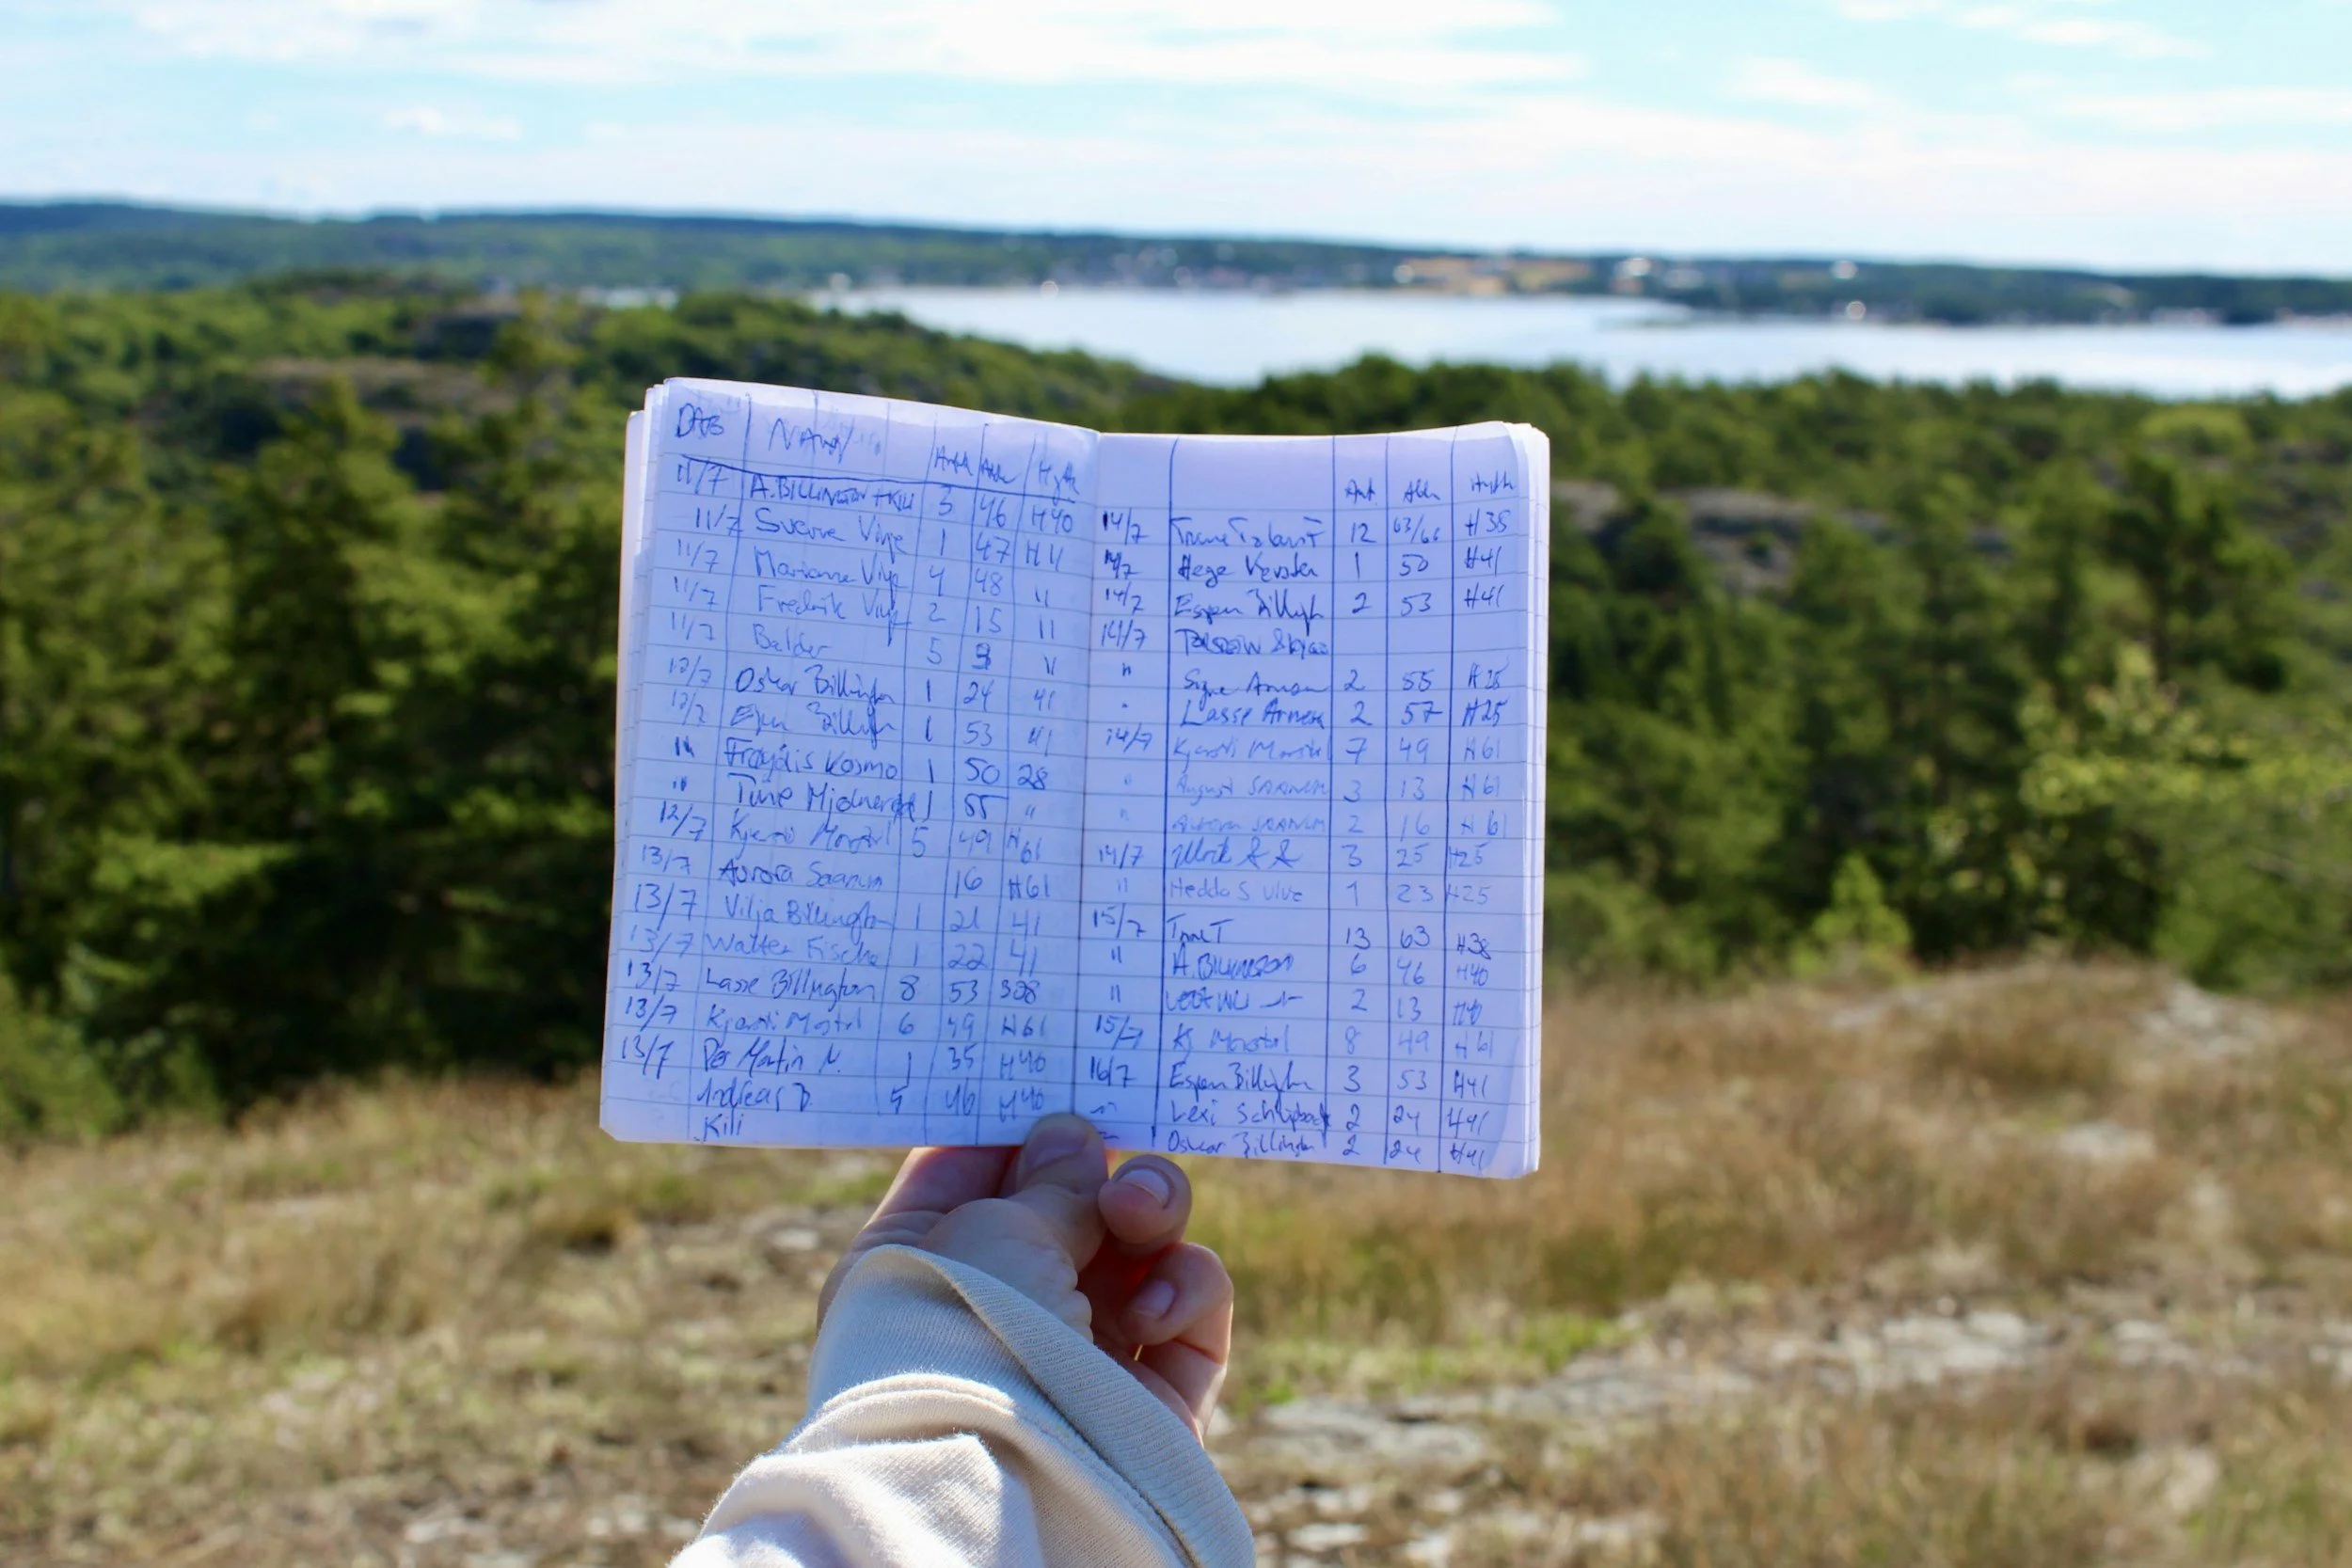 Dato Navn Antall Alder Hytte
11/7 A. BILLINGTON + KILI 3 46 H40
11/7 Sverre Vinje 1 47 H41
11/7 Marianne Vinje 4 48 "
11/7 Fredrik Vinje 2 15 "
11/7 Balder 5 "
12/7 Oskar Billington 1 24 41
12/7 Espen Billington 1 53 41
" Frøydis Kosmo 1 50 28
" Tine 1 55 "
12/7 Kjersti 5 49 H61
13/7 Aurora Saanum 16 H61
13/7 Vilja Billington 1 21 41
13/7 Walter Fische 1 22 41
13/7 Lasse Billington 8 53
13/7 Kjersti 6 49 H61
13/7 Per Martin N. 1 35 H40
Andreas B 5 46 H40
Kili
Ant. Alder Hytte
14/7 12 63/66 H35
14/7 Hege 1 50 H41
14/7 Espen Billington 2 53 H41
14/7
" Signe 2 55 H25
" Lasse 2 57 H25
14/7 Kjersti 7 49 H61
" August SAANUM 3 13 H61
" Aurora SAANUM 2 16 H61
14/7 3 25 H25
" Hedda S Ulve 1 23 H25
15/7 T 13 63 H38
" A. BILLINGTON 6 46 H40
" 2 13 H40
15/7 Kj 8 49 H61
16/7 Espen Billington 3 53 H41
" Lexi 2 24 H41
" Oskar Billington 2 24 H41